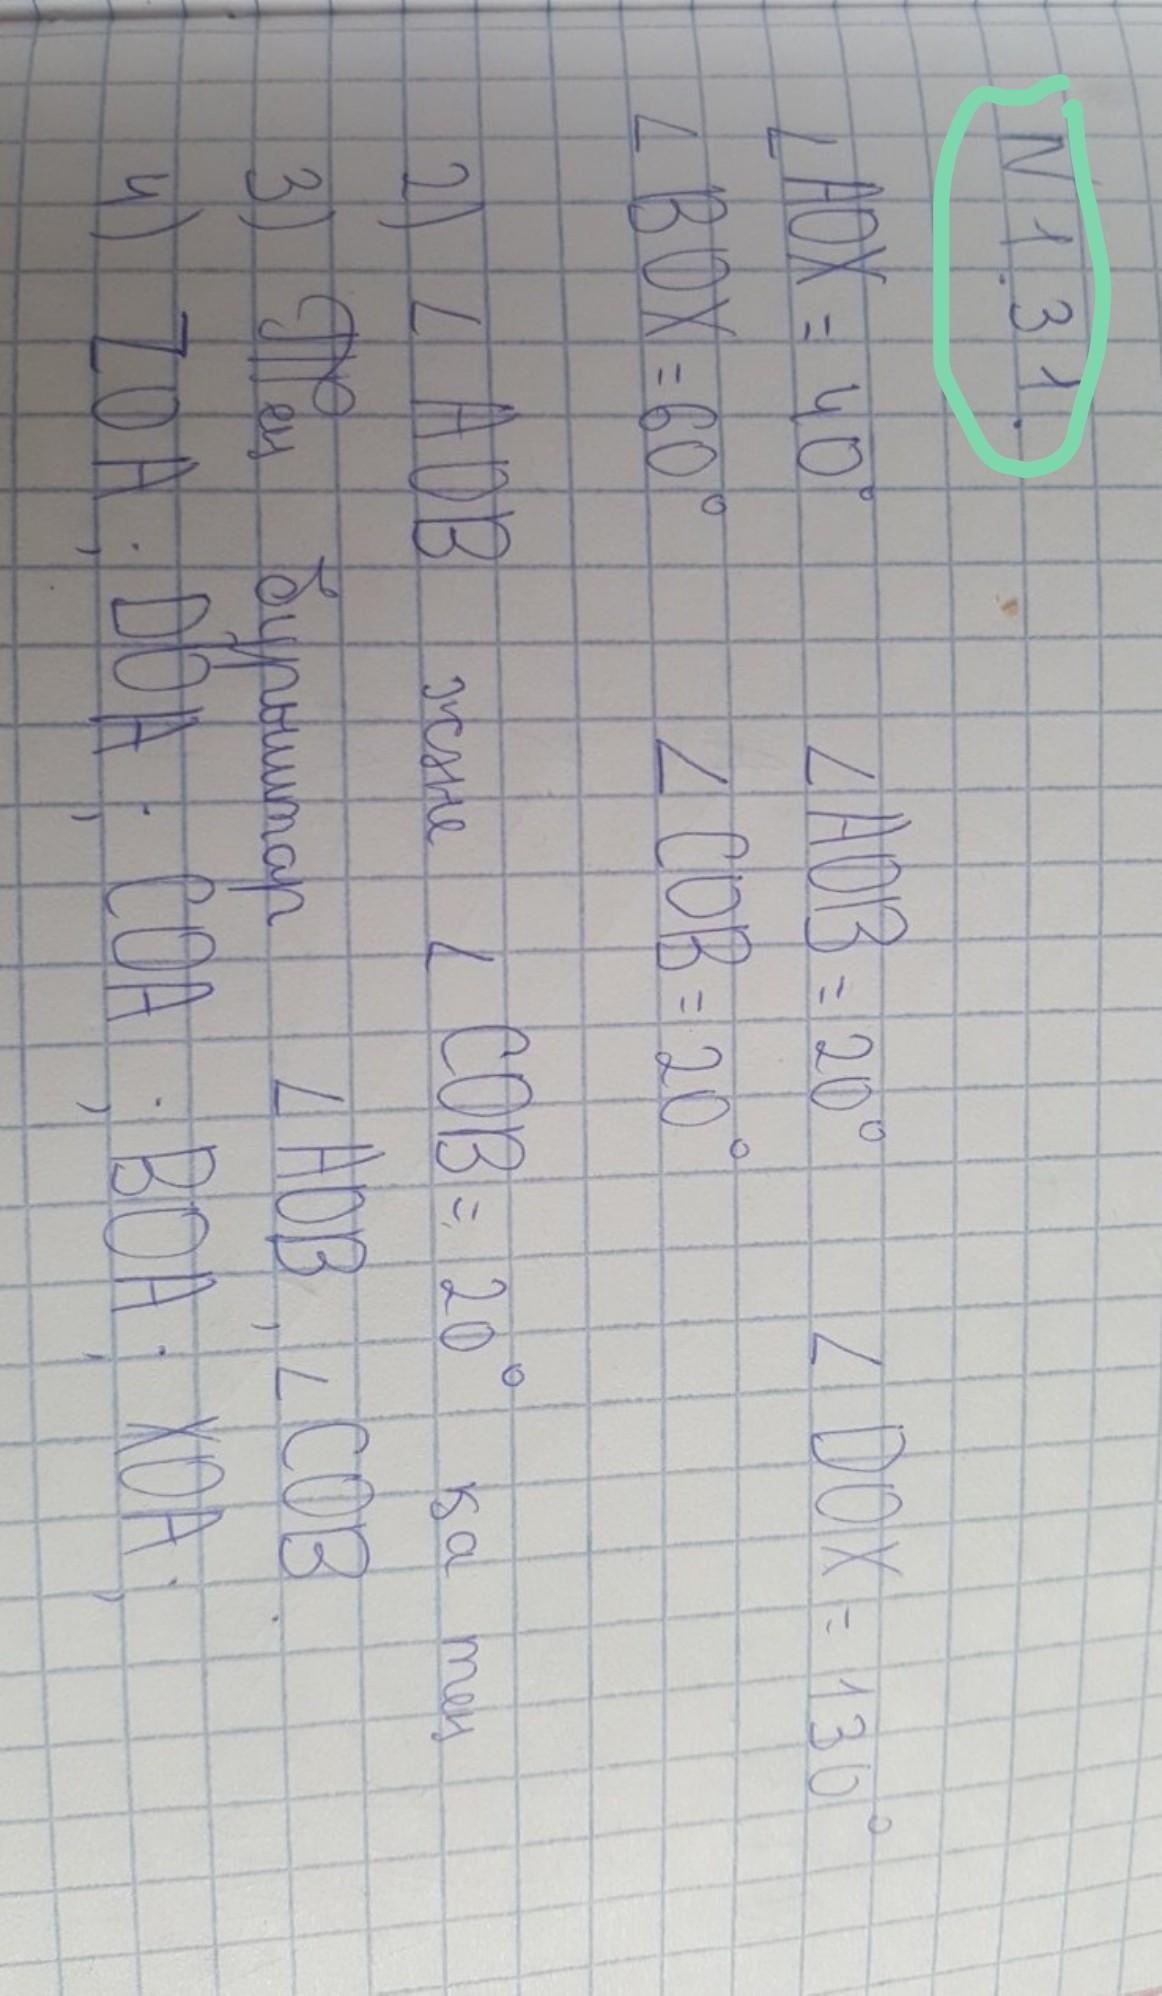 N 1.31.
∠AOX = 40° ∠AOB = 20° ∠DOX = 130°
∠BOX = 60° ∠COB = 20°
2) ∠AOB және ∠COB = 20° қа тең
3) Тең бұрыштар ∠AOB, ∠COB.
4) ZOA; DOA; COA; BOA; XOA;